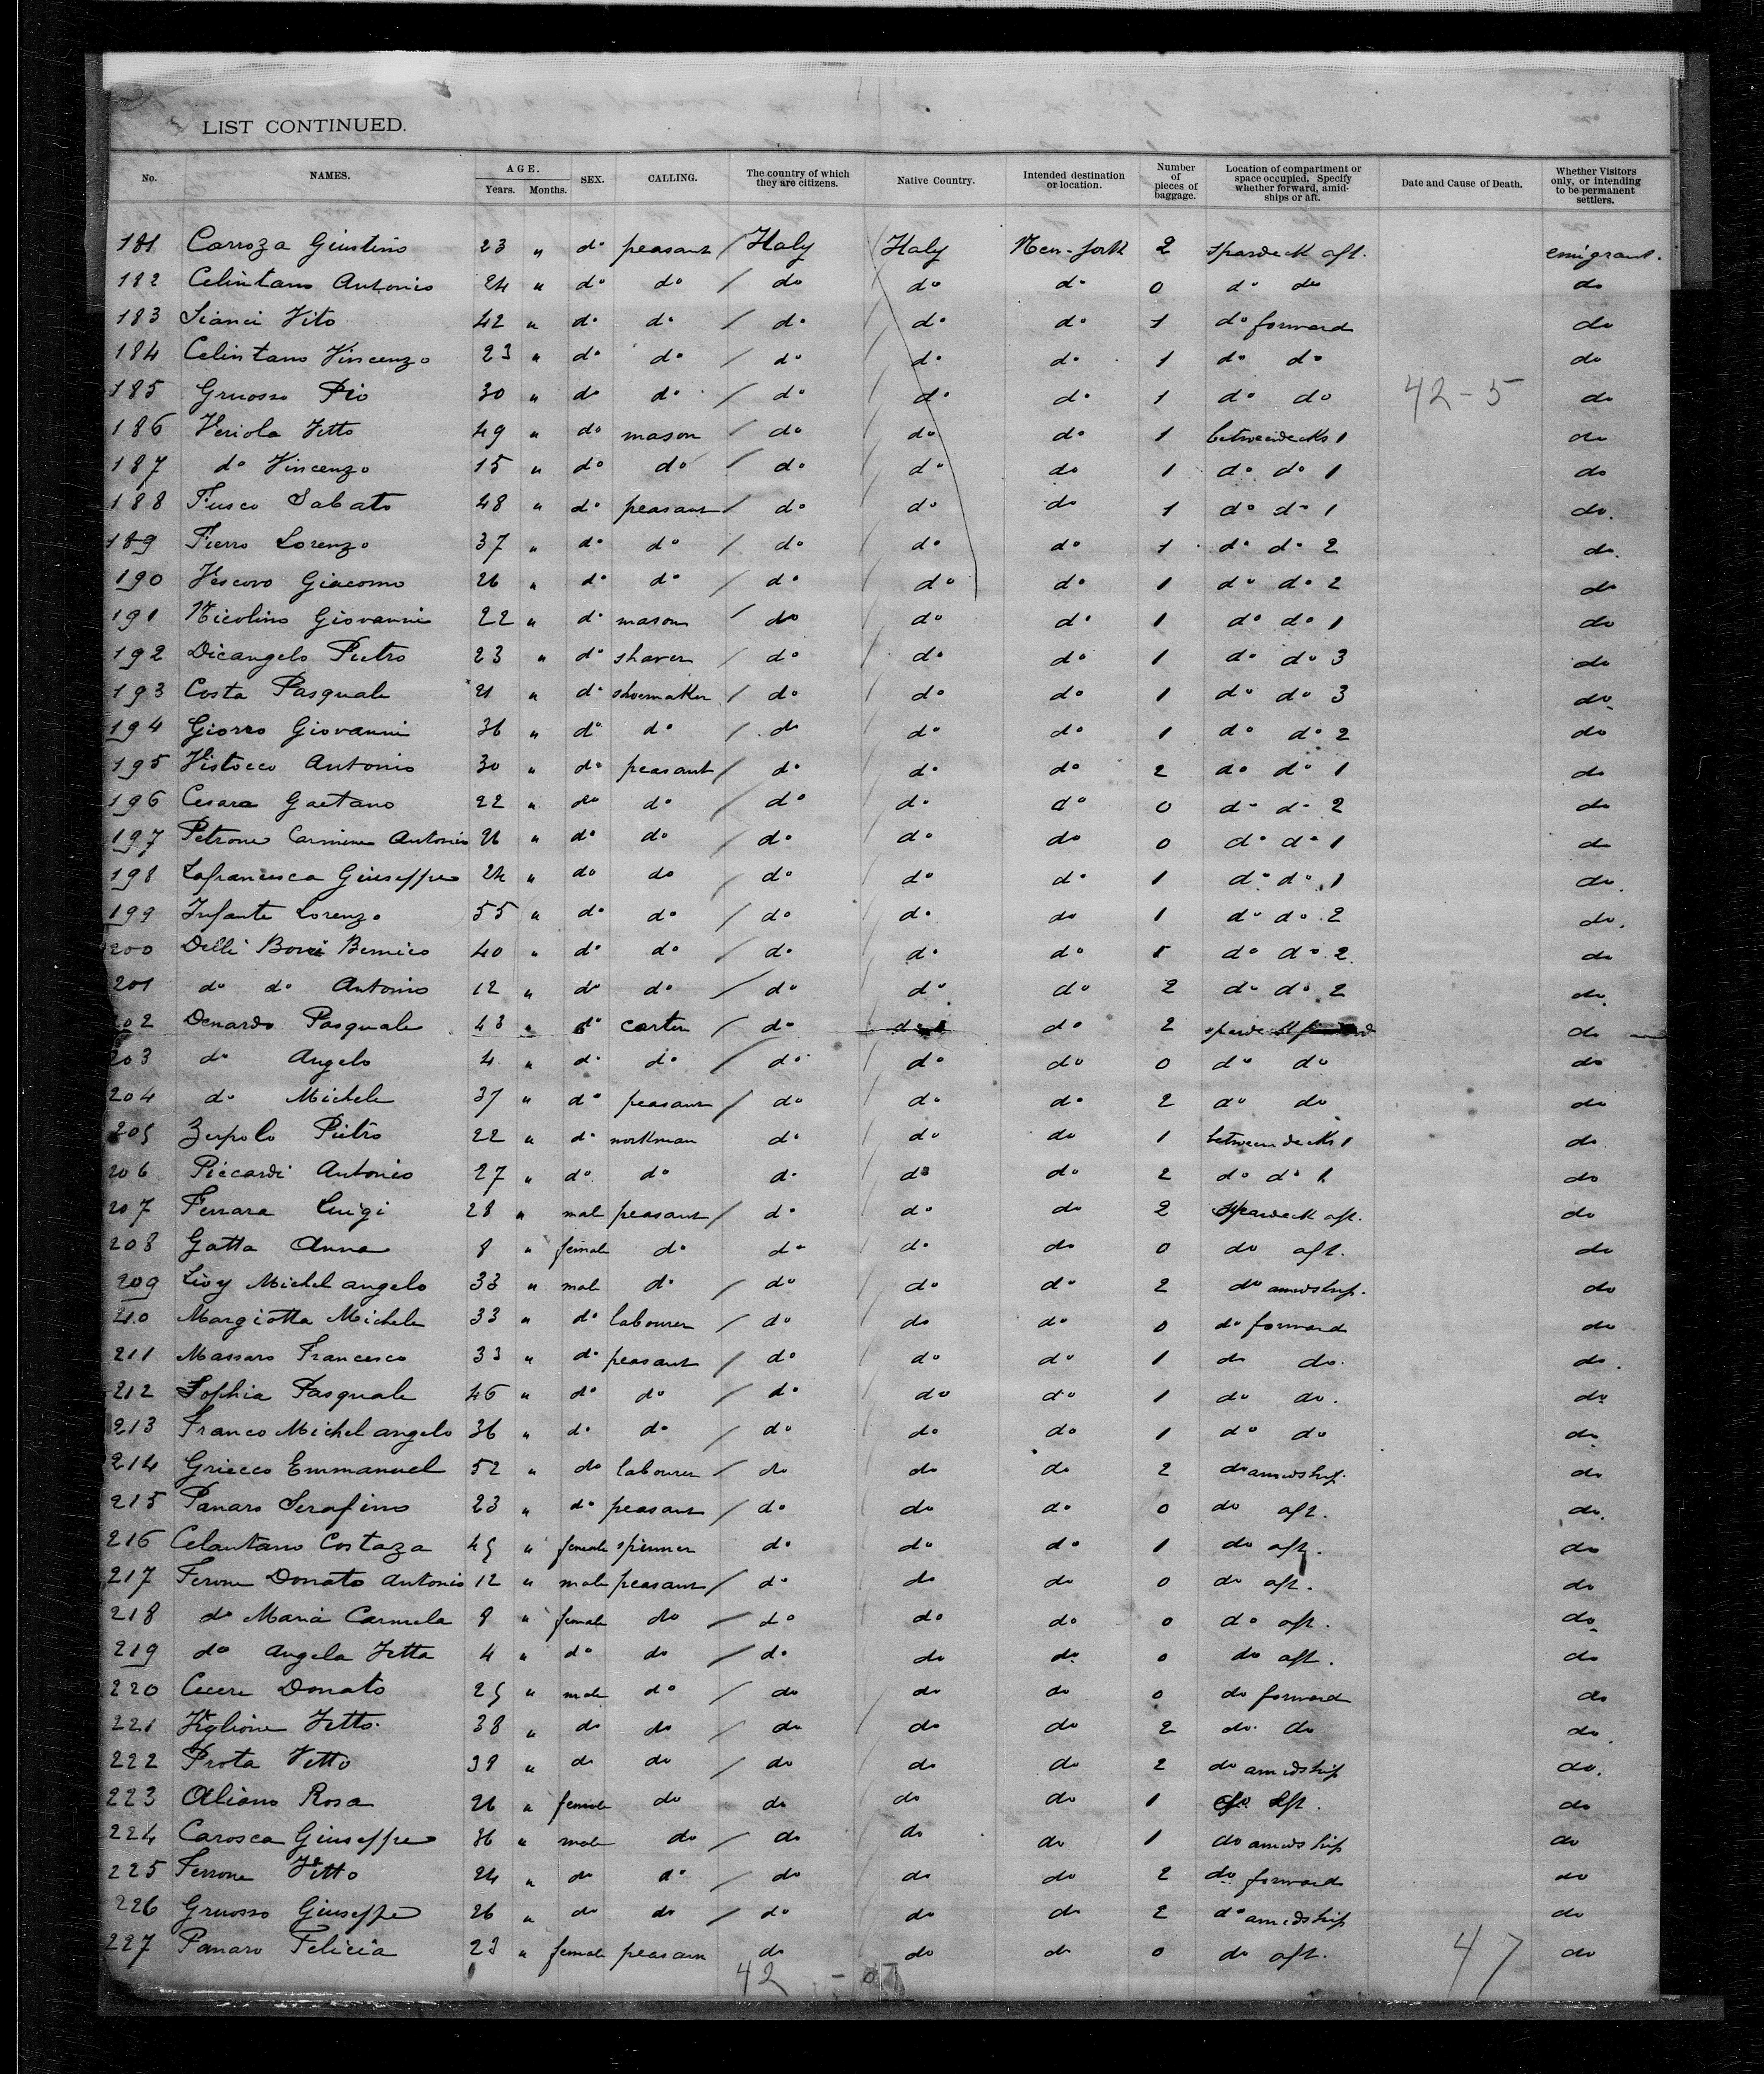 LIST CONTINUED.
No. NAMES. AGE. Years. Months. SEX. CALLING. The country of which they are citizens. Native Country. Intended destination or location. Number of pieces of baggage. Location of compartment or space occupied. Specify whether forward, amidships or aft. Date and Cause of Death. Whether Visitors only, or intending to be permanent settlers.
181 Carroza Giustino 23 " do peasant / Italy Italy New-York 2 spardeck aft. emigrant.
182 Celintano Antonio 24 " do do / do do do 0 do do do
183 Sianci Vito 42 " do do / do do do 1 do forward do
184 Celintano Vincenzo 23 " do do / do do do 1 do do do
185 Gruosso Pio 30 " do do / do do do 1 do do 42-5 do
186 Veriola Vitto 49 " do mason / do do do 1 betweendecks 1 do
187 do Vincenzo 15 " do do / do do do 1 do do 1 do
188 Fusco Sabato 48 " do peasant / do do do 1 do do 1 do.
189 Fierro Lorenzo 37 " do do / do do do 1 do do 2 do.
190 Vescovo Giacomo 26 " do do / do do do 1 do do 2 do
191 Nicolino Giovanni 22 " do mason / do do do 1 do do 1 do
192 Dicangelo Pietro 23 " do shaver / do do do 1 do do 3 do
193 Costa Pasquale 21 " do shoemaker / do do do 1 do do 3 do
194 Giorro Giovanni 36 " do do / do do do 1 do do 2 do
195 Vistocco Antonio 30 " do peasant / do do do 2 do do 1 do
196 Cesara Gaetano 22 " do do / do do do 0 do do 2 do
197 Petrone Carmine Antonio 26 " do do / do do do 0 do do 1 do
198 Lafrancesca Giuseppe 24 " do do / do do do 1 do do 1 do.
199 Infante Lorenzo 55 " do do / do do do 1 do do 2 do.
200 Delli Bovi 40 " do do / do do do 1 do do 2 do
201 do do Antonio 12 " do do / do do do 2 do do 2 do
202 Denardo Pasquale 43 " do carter / do do do 2 do
203 do Angelo 4 " do do / do do do 0 do do do
204 do Michele 37 " do peasant / do do do 2 do do do
205 Zerpolo Pietro 22 " do workman do do do 1 betweendecks 1 do
206 Piccardi Antonio 27 " do do do do do 2 do do 1 do
207 Ferrara Luigi 28 " male peasant / do do do 2 spardeck aft. do
208 Gatta Anna 8 " female do do do do 0 do aft. do
209 Livy Michelangelo 33 " male do / do do do 2 do amidship. do
210 Margiotta Michele 33 " do labourer / do do do 0 do forward do
211 Massaro Francesco 33 " do peasant / do do do 1 do do. do.
212 Sophia Pasquale 46 " do do / do do do 1 do do. do
213 Franco Michelangelo 36 " do do / do do do 1 do do do
214 Griecco Emmanuel 52 " do labourer / do do do 2 do amidship. do
215 Panaro Serafino 23 " do peasant / do do do 0 do aft. do.
216 Celantano Costaza 45 " female spinner do do do 1 do aft. do
217 Ferone Donato Antonio 12 " male peasant / do do do 0 do aft. do
218 do Maria Carmela 8 " female do / do do do 0 do aft. do
219 do Angela Vitta 4 " do do / do do do 0 do aft. do
220 Cecere Donato 25 " male do / do do do 0 do forward do
221 Viglione Vitto 38 " do do / do do do 2 do do do.
222 Prota Vitto 38 " do do / do do do 2 do amidship do.
223 Aliano Rosa 26 " female do do do do 1 do aft. do
224 Carosca Giuseppe 36 " male do / do do do 1 do amidship do
225 Ferrone Vitto 24 " do do / do do do 2 do forward do
226 Gruosso Giuseppe 26 " do do / do do do 2 do amidship do
227 Panaro Felicia 23 " female peasan do do do 0 do aft. do
42 47